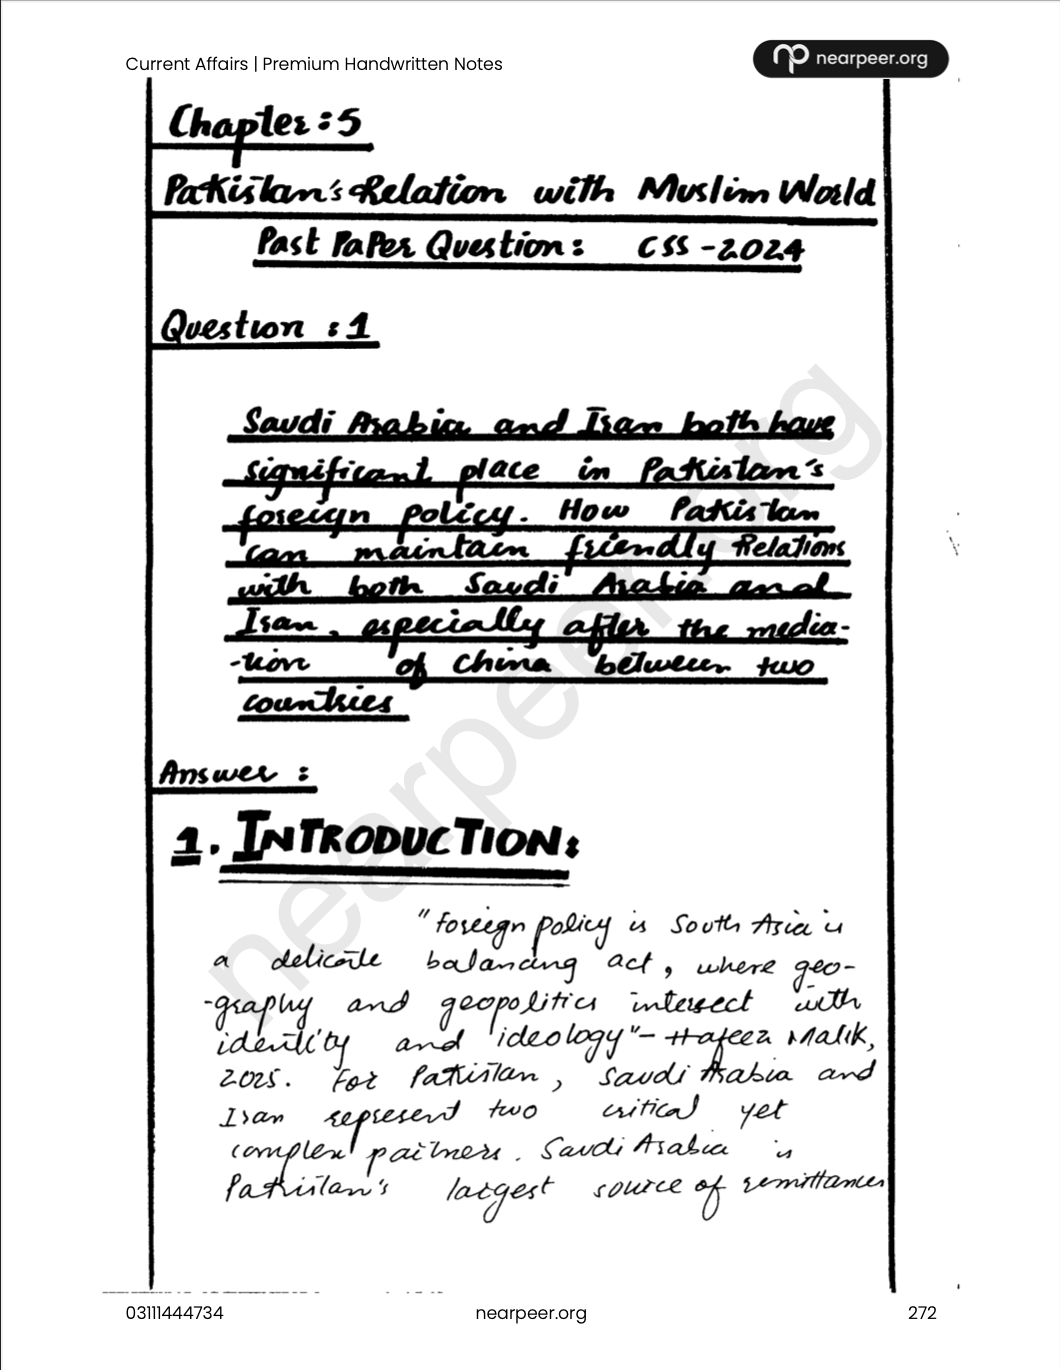 Current Affairs | Premium Handwritten Notes
nearpeer.org
Chapter:5
Pakistan's Relation with Muslim World
Past Paper Question: CSS-2024
Question :1
Saudi Arabia and Iran both have
significant place in Pakistan's
foreign policy. How Pakistan
can maintain friendly Relations
with both Saudi Arabia and
Iran, especially after the media-
-tion of China between two
countries
Answer :
1. INTRODUCTION:
"Foreign policy is South Asia is
a delicate balancing act, where geo-
-graphy and geopolitics intersect with
identity and ideology"- Hafeez Malik,
2025. For Pakistan, Saudi Arabia and
Iran represent two critical yet
complex partners. Saudi Arabia is
Pakistan's largest source of remittances
nearpeer.org
03111444734
nearpeer.org
272